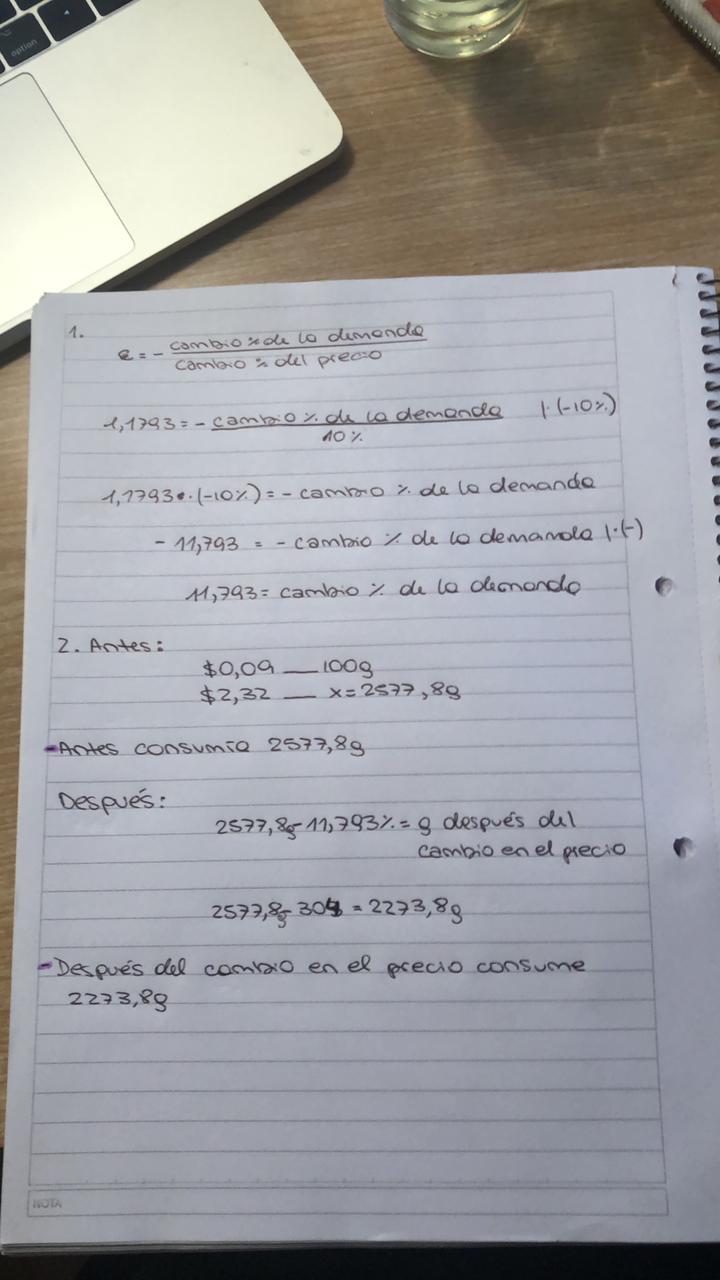 option
1.
e = - cambio % de la demanda
cambio % del precio
1,1793 = - cambio % de la demanda |·(-10%)
10%
1,1793·(-10%) = - cambio % de la demanda
- 11,793 = - cambio % de la demanda |·(-)
11,793 = cambio % de la demanda
2. Antes:
$0,09 — 100g
$2,32 — x = 2577,8g
- Antes consumía 2577,8g
Después:
2577,8g - 11,793% = g después del
cambio en el precio
2577,8g - 304 = 2273,8g
- Después del cambio en el precio consume
2273,8g
NOTA